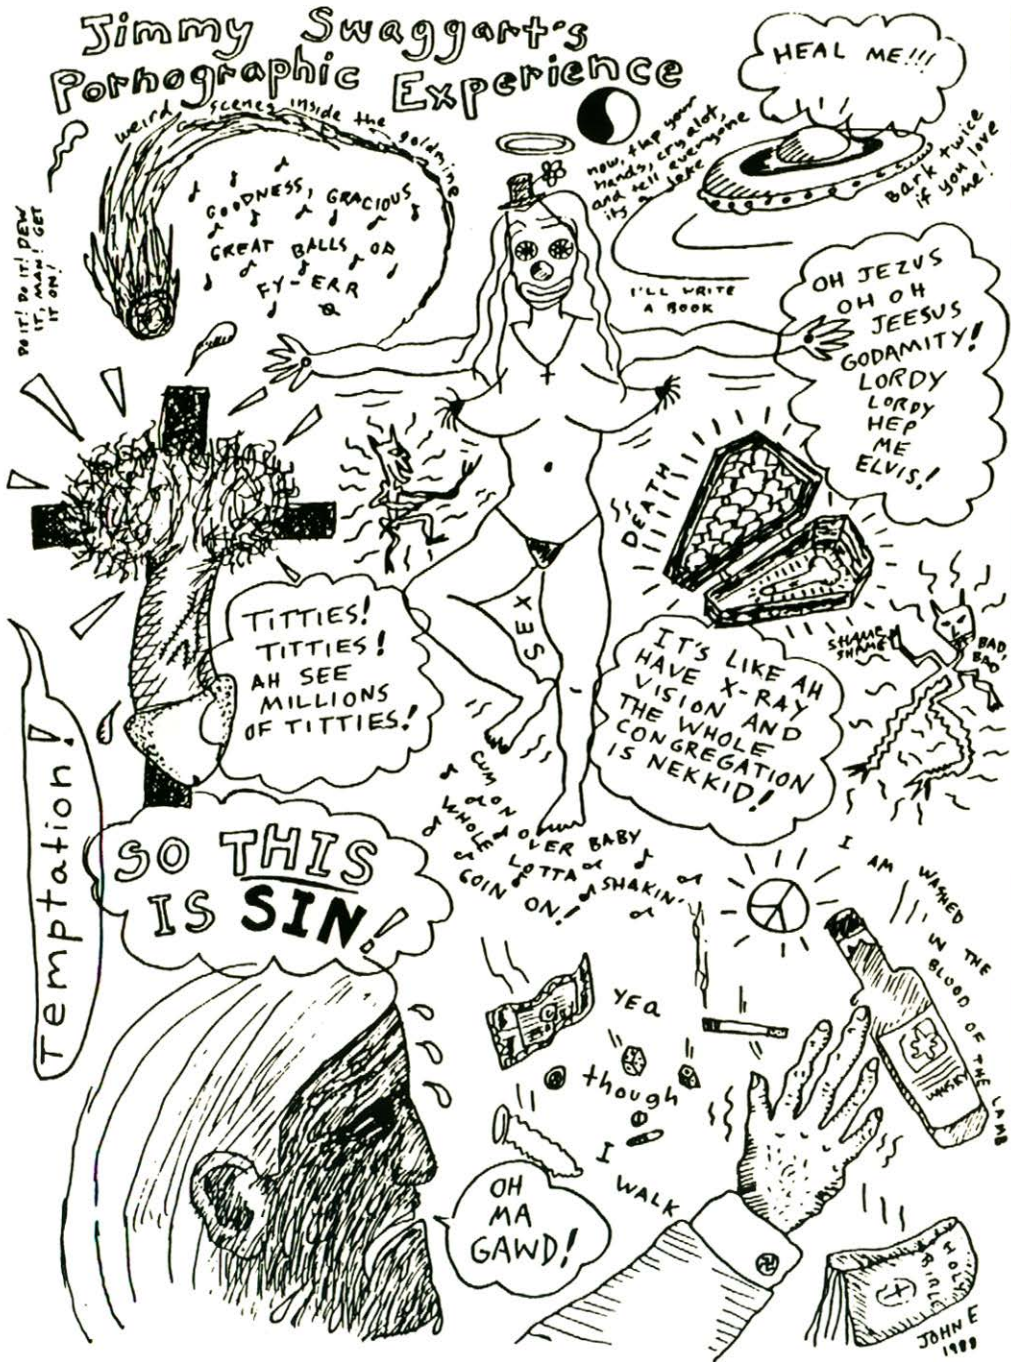 Jimmy Swaggart's
Pornographic Experience
HEAL ME!!!
weird scenes inside the goldmine
now, flap your
hands, cry alot,
and tell everyone
its a joke
bark twice
if you love
me!
GOODNESS, GRACIOUS
GREAT BALLS OA
FY-ERR
DO IT! DO IT! DEW
IT, MAN! GET
IT ON!
I'LL WRITE
A BOOK
OH JEZUS
OH OH
JEESUS
GODAMITY!
LORDY
LORDY
HEP
ME
ELVIS!
DEATH
SEX
TITTIES!
TITTIES!
AH SEE
MILLIONS
OF TITTIES!
IT'S LIKE AH
HAVE X-RAY
VISION AND
THE WHOLE
CONGREGATION
IS NEKKID!
SHAME
SHAME
BAD,
BAD
Temptation!
CUM ON OVER BABY
WHOLE LOTTA SHAKIN'
GOIN ON!
SO THIS
IS SIN!
I AM WASHED
IN THE
BLOOD OF THE LAMB
YEA
though
I
WALK
WHISKY
OH
MA
GAWD!
HOLY
BIBLE
JOHN E
1988